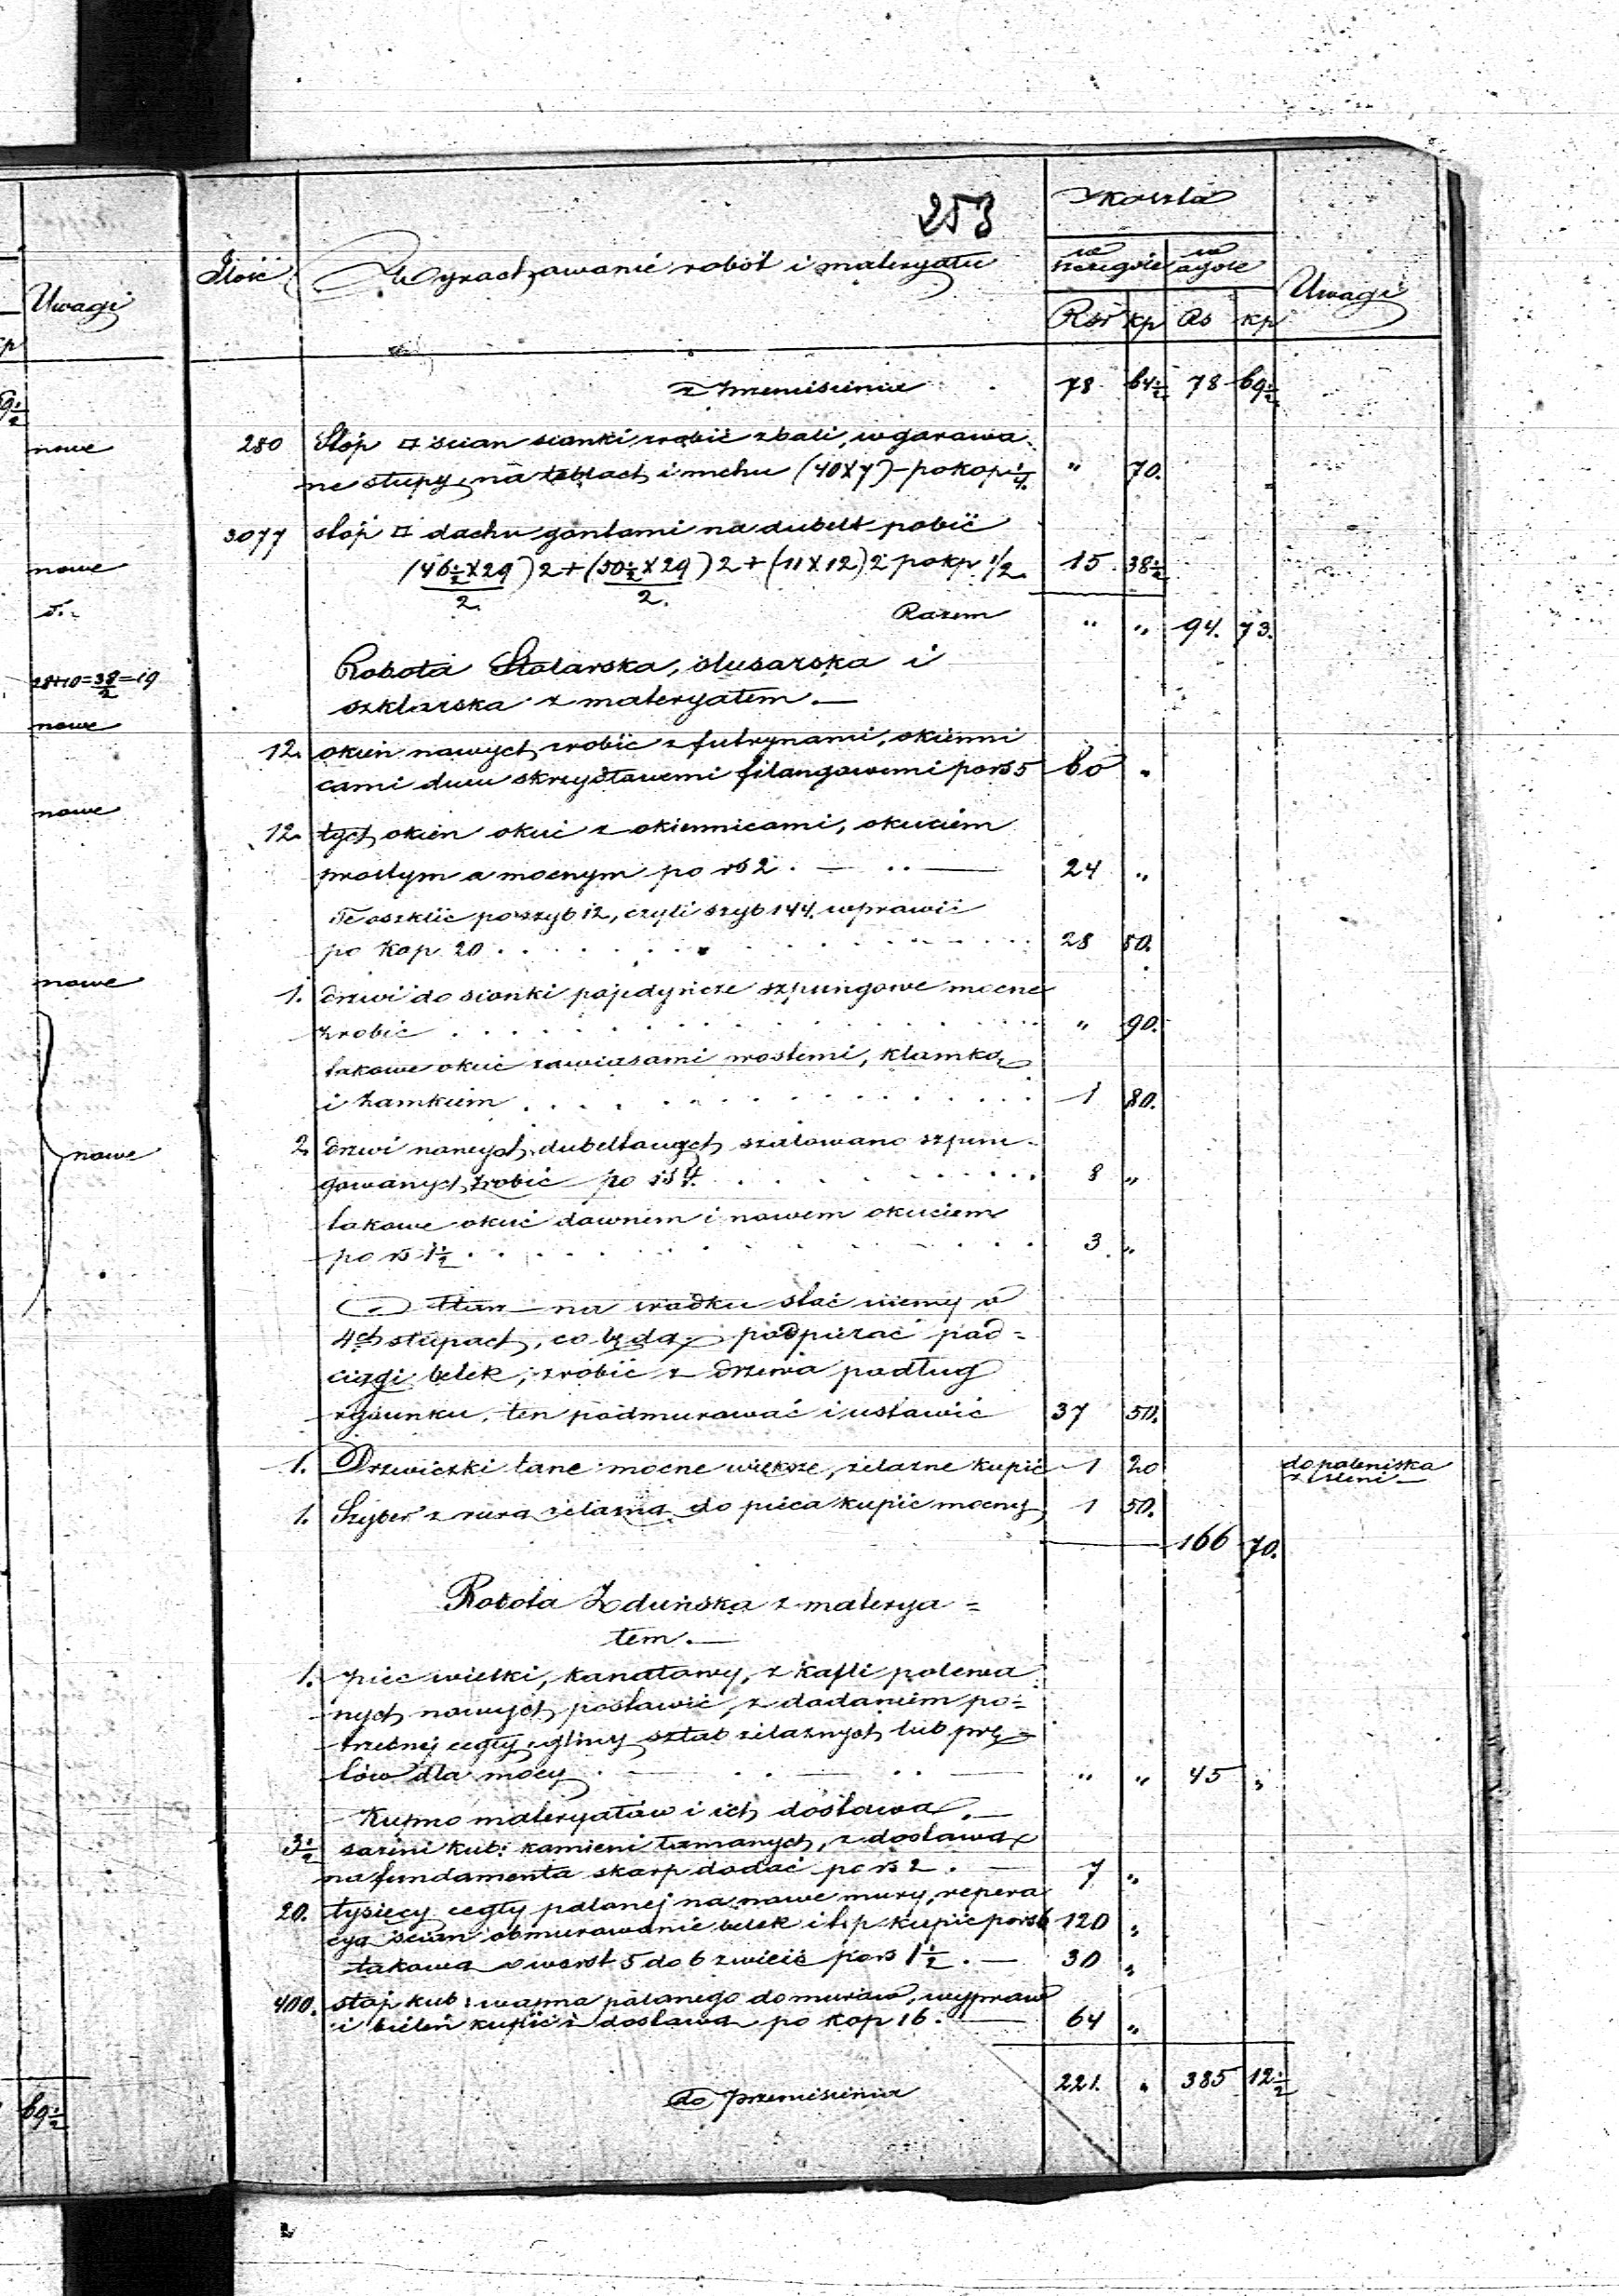 253
Koszta
Ilość Wyrachowanie robót i materyału w szczególe w ogóle Uwagi
Rsr kp Rs kp
Uwagi
kp
z przeniesienia 78 64½ 78 69½
9½
nowe
280 Stóp □ ścian sionki zrobić z bali, w garowa
ne słupy, na teblach i mchu (40X7) po kop ¼. " 70.
3077 stóp □ dachu gontami na dubelt pobić
nowe
(46½X29)2+(50½X29)2+(11X12)2 po kp ½. 15. 38½
2. 2.
Razem " " 94. 73.
28+10=38=19
2
Robota Stolarska, ślusarska i
szklarska z materyałem.—
nowe
12. okien nowych zrobić z futrynami, okienni
cami dwu skrzydłowemi filongowemi po rs 5 60 "
nowe
12. tych okien okuć z okiennicami, okuciem
prostym a mocnym po rs 2. — 24 "
Te oszklić po szyb 12, czyli szyb 144 wprawić
po kop 20 . . . 28 80.
nowe
1. drzwi do sionki pojedyńcze szpungowe mocne
zrobić . . . " 90.
takowe okuć zawiasami prostemi, klamką
i zamkiem . . . 1 80.
nowe
2 drzwi nowych dubeltowych szalowano szpun-
gowanych zrobić po rs 4. . . 8 "
takowe okuć dawnem i nowem okuciem
po rs 1½ . . . 3 "
Ołtarz na środku stać mający o
4ch słupach, co będą podpierać pod=
ciągi belek, zrobić z drzewa podług
rysunku, ten podmurować i ustawić 37 50.
1. Drzwiczki lane mocne większe, żelazne kupić 1 20 do paleniska
z sieni —
1. Szyber z rurą żelazną do pieca kupić mocny 1 50.
166 70.
Robota Zduńska z materya=
łem.—
1. piec wielki, kanałowy, z kafli polewa
nych nowych postawić, z dodaniem po=
trzebnej cegły, gliny sztab żelaznych lub prę=
tów dla mocy . — " " 45 "
Kupno materyałów i ich dostawa.—
3½ sążni kub: kamieni łamanych, z dostawą
na fundamenta skarp dodać po rs 2. — 7 "
20. tysięcy cegły palonej na nowe mury, repera
cya ścian obmurowanie belek i t.p. kupić po rs 6 120 "
takową o worst 5 do 6 zwieść po rs 1½. — 30 "
400. stóp kub: wapna palonego do murów, wypraw
i bieleń kupić z dostawą po kop 16. — 64 "
221. " 385 12½
do przeniesienia
69½